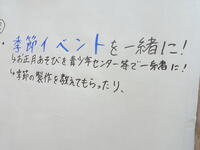 ・季節イベントを一緒に!
↳お正月あそびを青少年センター等で一緒に!
↳季節の製作を教えてもらったり、